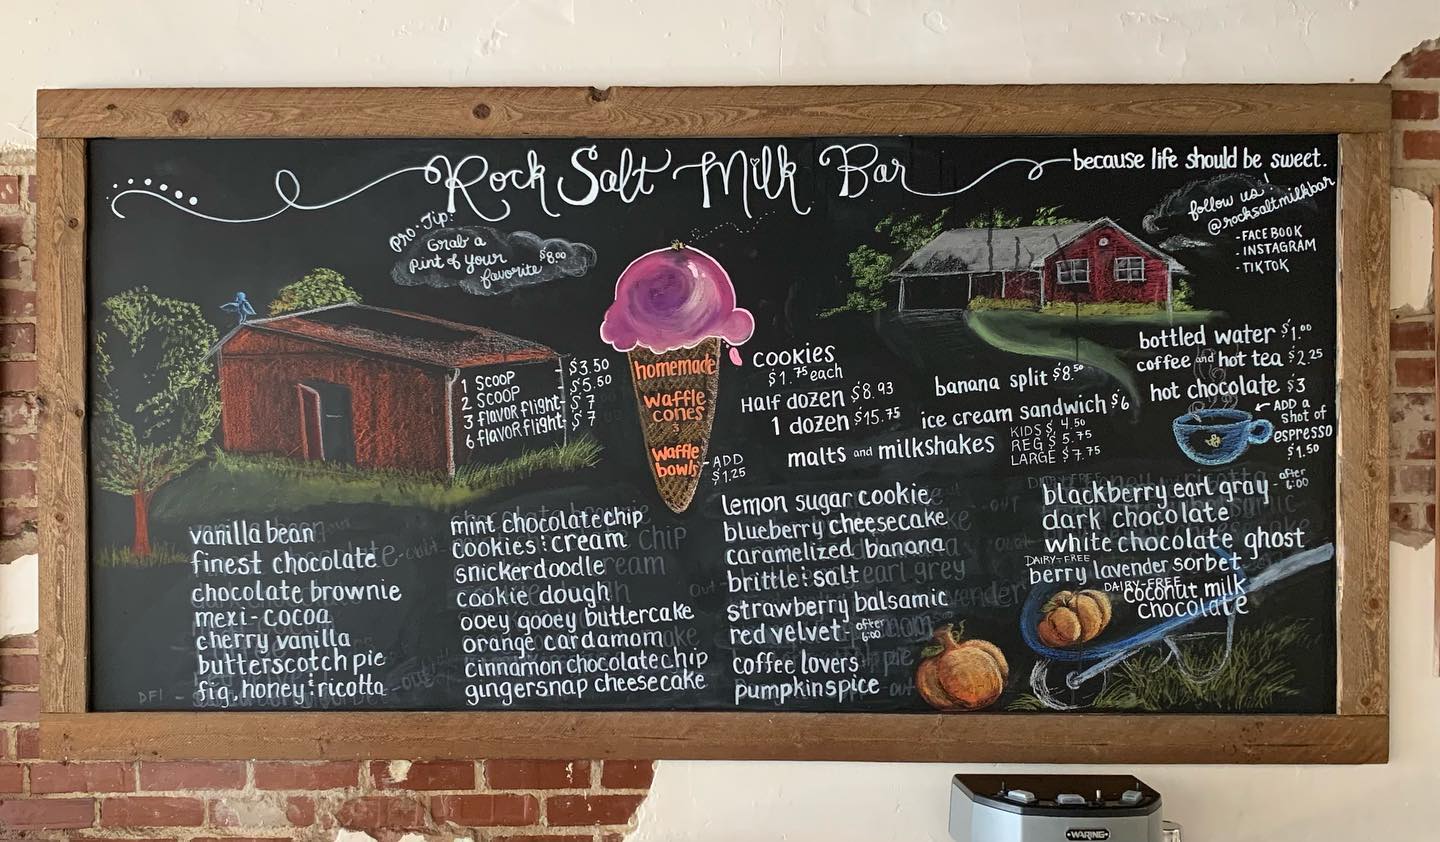 Rock Salt Milk Bar
because life should be sweet.
follow us!
@rocksaltmilkbar
- FACEBOOK
- INSTAGRAM
- TIKTOK
Pro-Tip:
Grab a
pint of your
favorite $8.00
1 SCOOP - $3.50
2 SCOOP - $5.50
3 flavor flight - $7
6 flavor flight - $7
homemade
waffle
cones
waffle
bowls
ADD
$1.25
cookies
$1.75 each
Half dozen $8.93
1 dozen $15.75
banana split $8.50
ice cream sandwich $6
malts and milkshakes
KIDS $4.50
REG $5.75
LARGE $7.75
bottled water $1.00
coffee and hot tea $2.25
hot chocolate $3
ADD a
shot of
espresso
$1.50
vanilla bean
finest chocolate
chocolate brownie
mexi-cocoa
cherry vanilla
butterscotch pie
fig, honey & ricotta
mint chocolate chip
cookies & cream
snickerdoodle
cookie dough
ooey gooey buttercake
orange cardamom
cinnamon chocolate chip
gingersnap cheesecake
lemon sugar cookie
blueberry cheesecake
caramelized banana
brittle & salt
strawberry balsamic
red velvet - after 6:00
coffee lovers
pumpkin spice
blackberry earl gray - after 6:00
dark chocolate
white chocolate ghost
DAIRY-FREE
berry lavender sorbet
DAIRY-FREE
coconut milk
chocolate
WARING